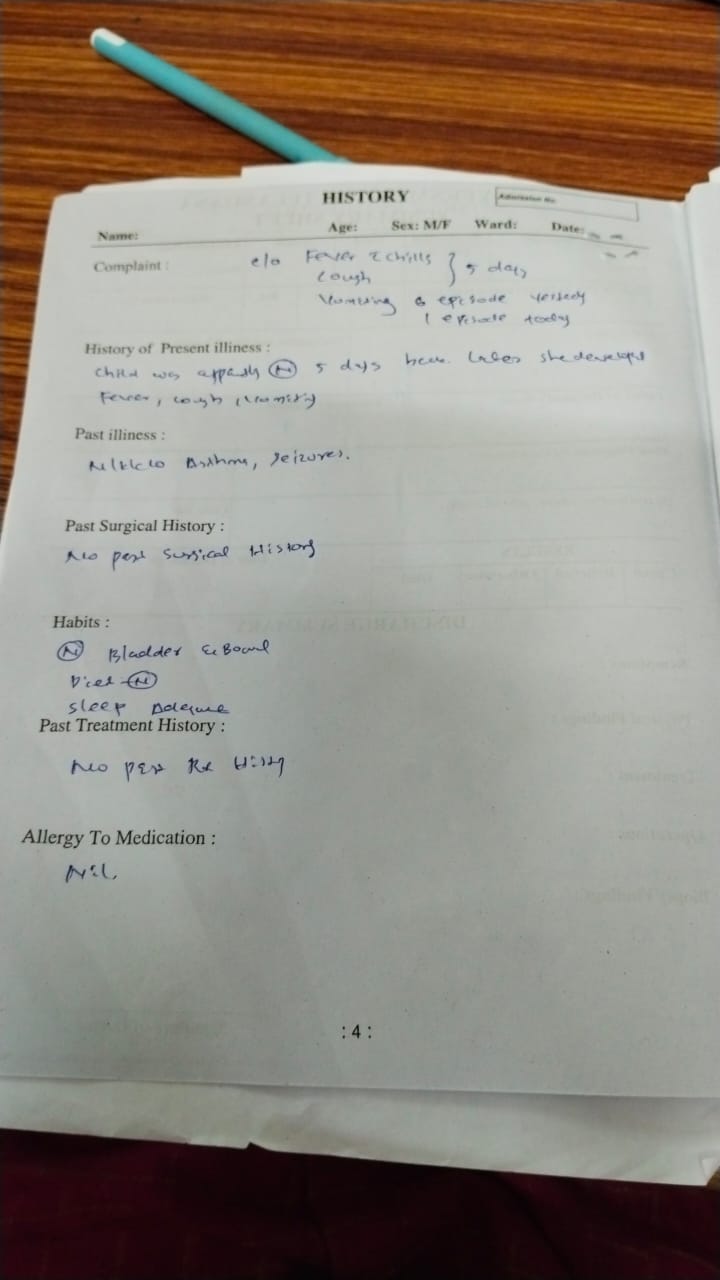 HISTORY
Admission No.
Name: Age: Sex: M/F Ward: Date:
Complaint : c/o Fever c chills } 5 days
cough
Vomiting 6 episode yesterday
1 episode today
History of Present illness :
Child was appantly (N) 5 days back. Later she developed
Fever, cough, vomiting
Past illness :
N/K/c/o Asthma, seizures.
Past Surgical History :
No past surgical History
Habits :
(N) Bladder & Bowel
Diet - (N)
Sleep Adequate
Past Treatment History :
No past Rx History
Allergy To Medication :
Nil.
: 4 :